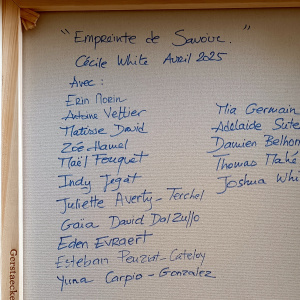 "Empreinte de Savoir."
Cécile White Avril 2025
Avec :
Erin Morin
Antoine Vettier
Matisse David
Zoé Hamel
Maël Fouquet
Indy Jegat
Juliette Averty - Terchel
Gaïa David Dalzuffo
Eden Evraert
Esteban - Cateloy
Yuna Carpio - Gonzalez
Mia Germain
Adelaide Sute
Damien Belhom
Thomas Mahé
Joshua Whi
Gerstaecke